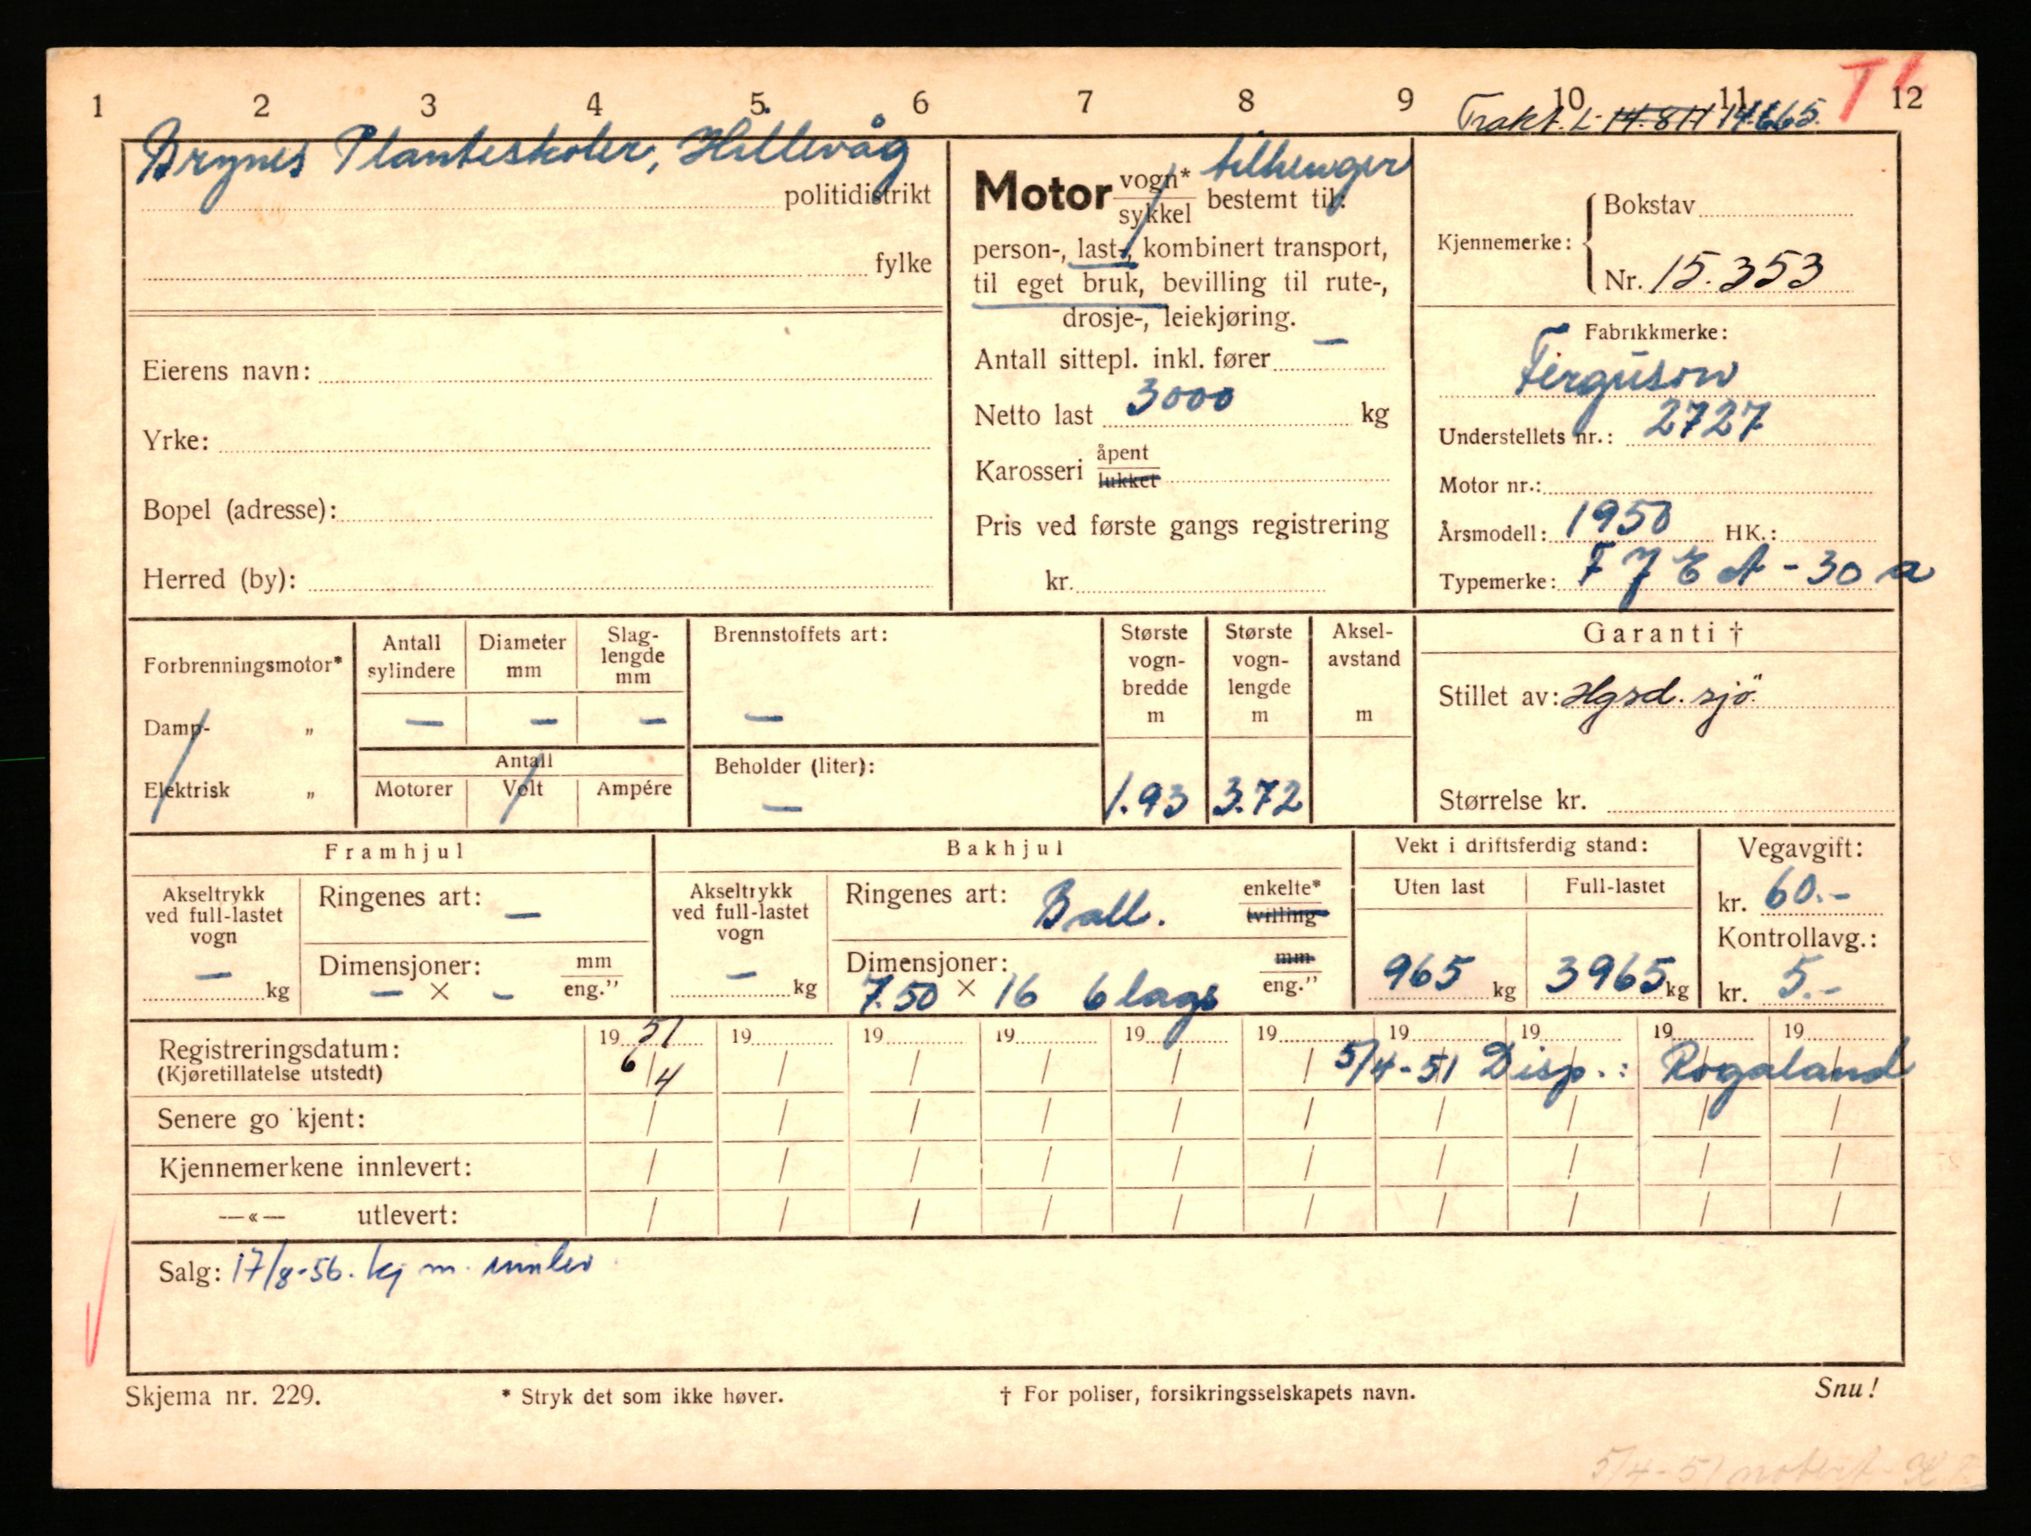 1 2 3 4 5 6 7 8 9 10 11 12
T
Trakt. L- 14.811 14.665.
Brynes Planteskoler, Hillevåg
politidistrikt
fylke
Eierens navn:
Yrke:
Bopel (adresse):
Herred (by):
Motor vogn* / sykkel tilhenger bestemt til:
person-, last-, kombinert transport,
til eget bruk, bevilling til rute-,
drosje-, leiekjøring.
Antall sittepl. inkl. fører —
Netto last 3000 kg
Karosseri åpent / lukket
Pris ved første gangs registrering
kr.
Kjennemerke: Bokstav
Nr. 15.353
Fabrikkmerke:
Ferguson
Understellets nr.: 2727
Motor nr.:
Årsmodell: 1950 HK.:
Typemerke: F J E A - 30 a
Forbrenningsmotor*
Damp- „
Elektrisk „
Antall sylindere —
Diameter mm —
Slag-lengde mm —
Antall
Motorer Volt Ampére
Brennstoffets art: —
Beholder (liter): —
Største vogn-bredde m 1.93
Største vogn-lengde m 3.72
Aksel-avstand m
Garanti †
Stillet av: Hgsd. sjö.
Størrelse kr.
Framhjul
Akseltrykk ved full-lastet vogn — kg
Ringenes art: —
Dimensjoner: — × — mm / eng."
Bakhjul
Akseltrykk ved full-lastet vogn — kg
Ringenes art: Ball. enkelte* / tvilling
Dimensjoner: 7.50 × 16 6 lags mm / eng."
Vekt i driftsferdig stand:
Uten last Full-lastet
965 kg 3965 kg
Vegavgift:
kr. 60.-
Kontrollavg.:
kr. 5.-
Registreringsdatum: 19 51 19 19 19 19 19 19 19 19 19
(Kjøretillatelse utstedt) 6/4 / / / / / 5/4-51 Disp.: Rogaland
Senere go kjent: / / / / / / / / / /
Kjennemerkene innlevert: / / / / / / / / / /
—«— utlevert: / / / / / / / / / /
Salg: 17/8-56. kj m. innlev
Skjema nr. 229. * Stryk det som ikke høver. † For poliser, forsikringsselskapets navn. Snu!
5/4-51 notert